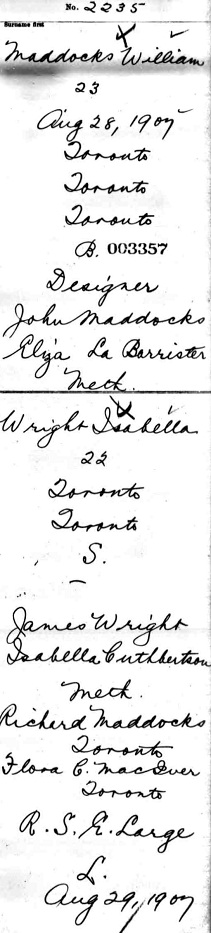 No. 2235
Surname first
Maddocks William
23
Aug 28, 1907
Toronto
Toronto
Toronto
B. 003357
Designer
John Maddocks
Eliza La Barrister
Meth.
Wright Isabella
22
Toronto
Toronto
S.
–
James Wright
Isabella Cuthbertson
Meth.
Richard Maddocks
Toronto
Flora C. MacIver
Toronto
R. S. E. Large
L.
Aug 29, 1907